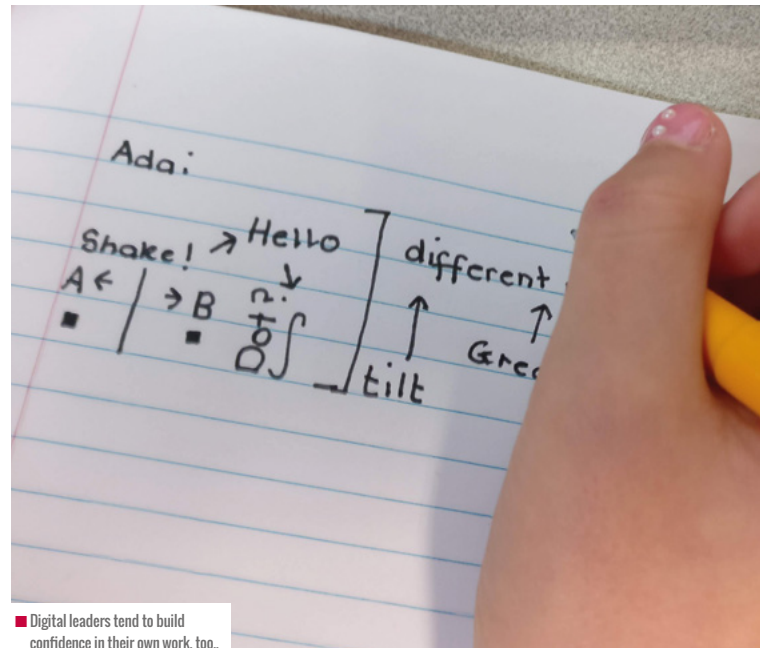 Ada:
Shake! → Hello
A ← | → B
different
↑ ↑
tilt
Digital leaders tend to build
confidence in their own work, too..